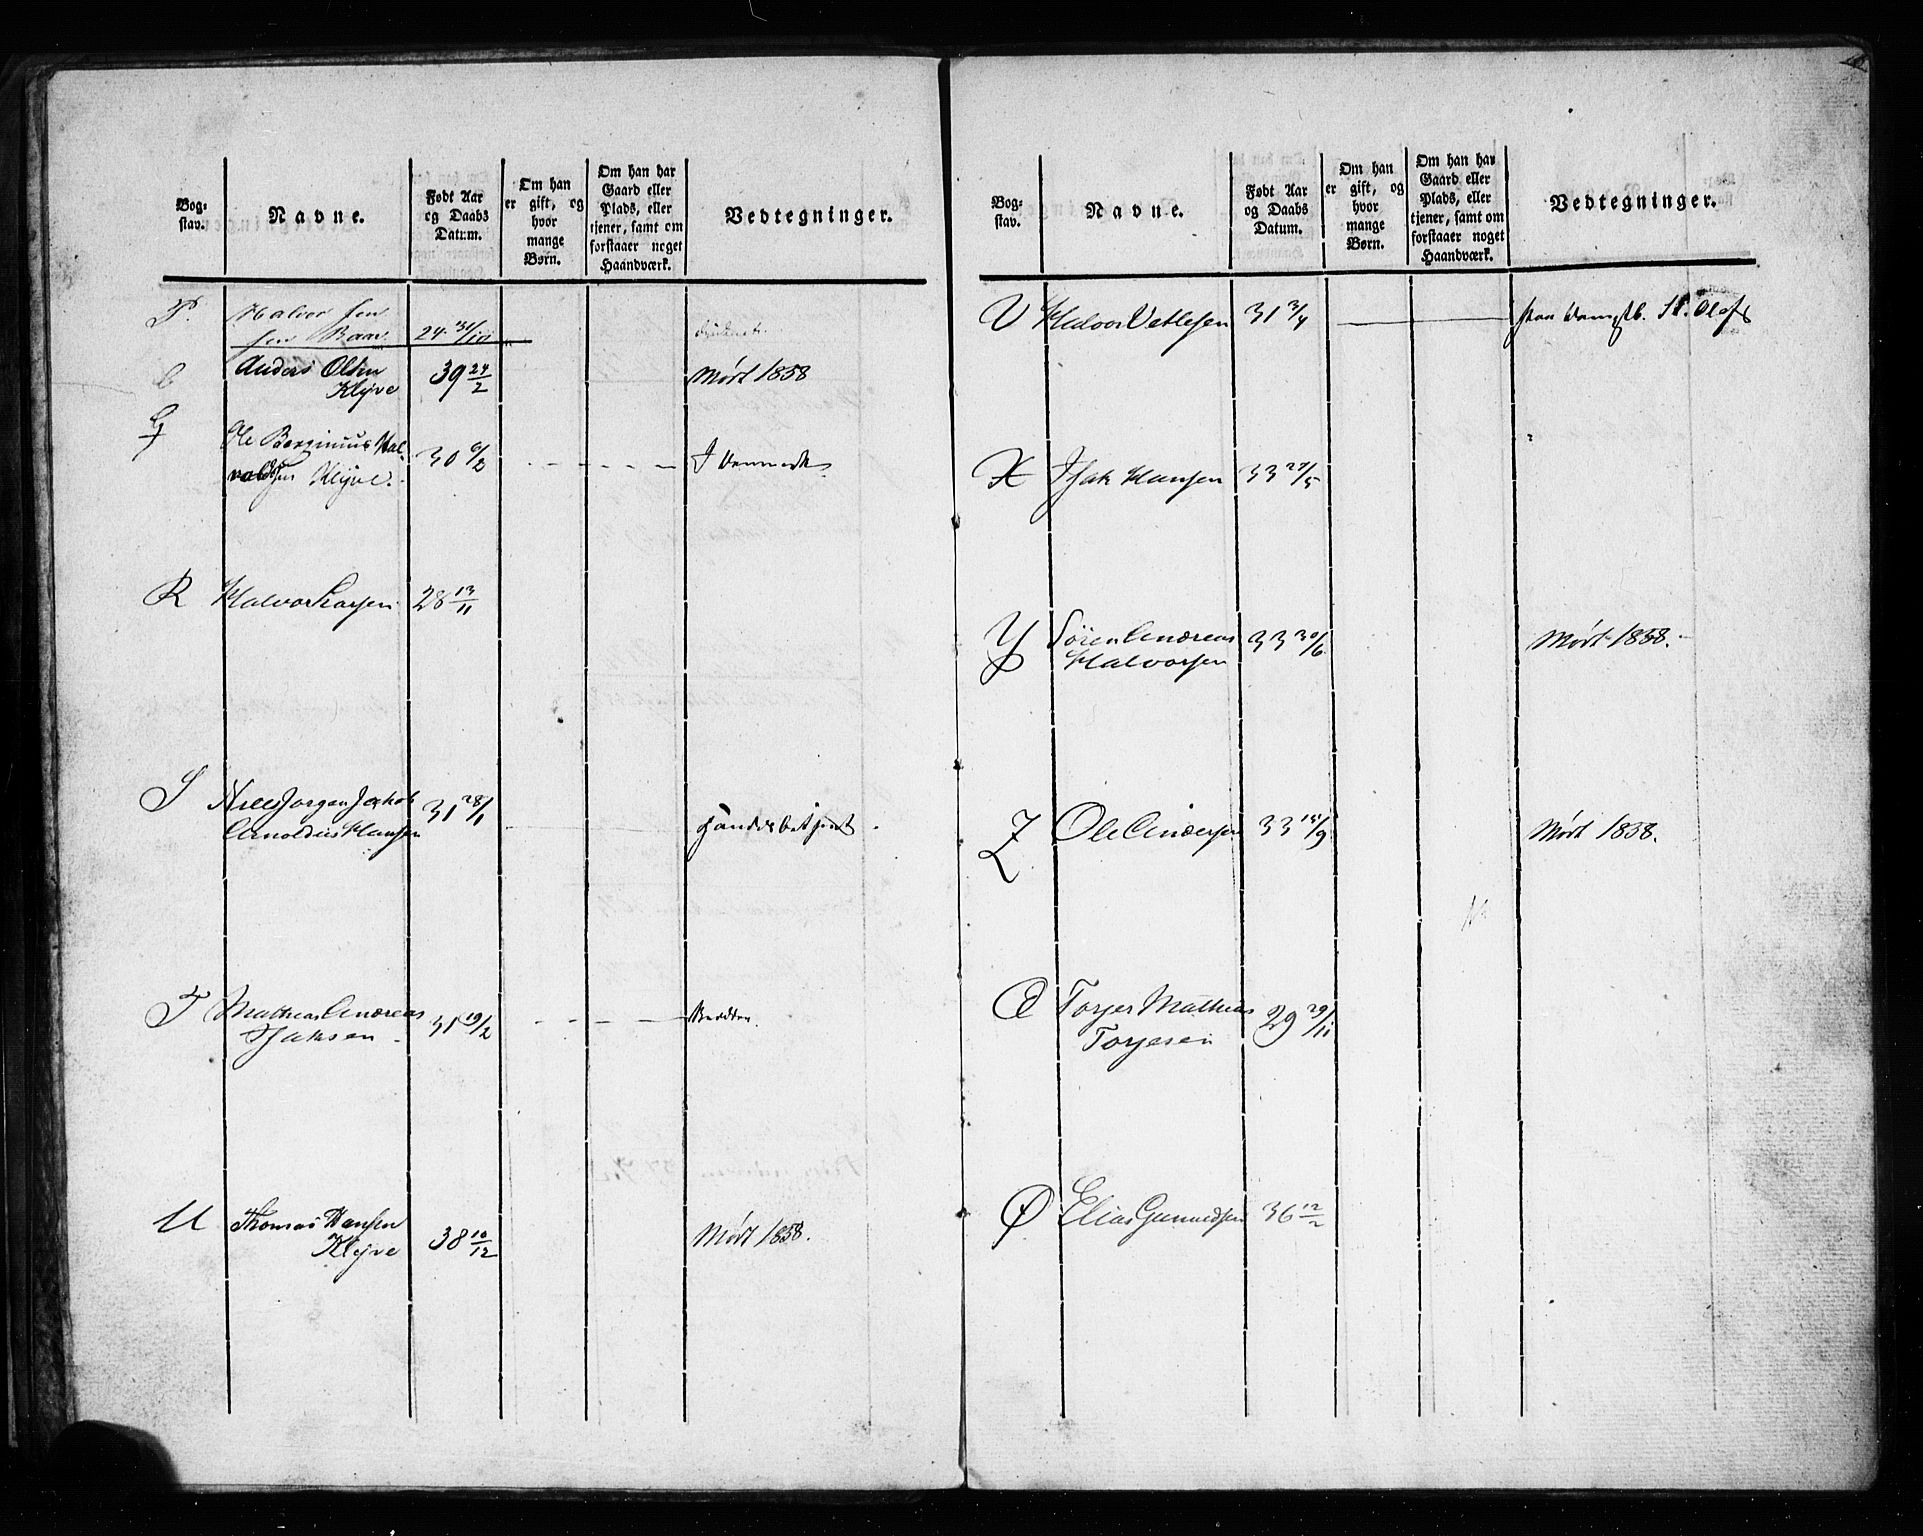 Bog-
stav.
Navne.
Født Aar
og Daabs
Datum.
Om han
er gift, og
hvor
mange
Børn.
Om han har
Gaard eller
Plads, eller
tjener, samt om
forstaaer noget
Haandværk.
Vedtegninger.
P. Halvor
24 31/10
Anders Olsen
Klyve
39 24/2
Mørt 1858
G
Ole Berginius Hal-
valdsen Klyve.
30 6/2
I Danmark
R Halvor Larsen 28 13/11
S Niels Jørgen Jakob
Arnoldus Hansen
31 28/1
T Mathias Andreas
Isaksen
31 19/2
U Thomas Hansen
Klyve
38 10/12
Mørt 1858.
Bog-
stav.
Navne.
Født Aar
og Daabs
Datum.
Om han
er gift, og
hvor
mange
Børn.
Om han har
Gaard eller
Plads, eller
tjener, samt om
forstaaer noget
Haandværk.
Vedtegninger.
V Halvor Vetlesen 31 3/4 paa Dampsb. St. Olaf
X Isak Hansen 33 27/5
Y Søren Andreas
Halvorsen
33 30/6
Mørt 1858.
Z Ole Andersen 33 15/9 Mørt 1858.
Æ Torjer Mathias
Torjesen
29 29/11
Ø Elias Gunnedsen 36 12/2